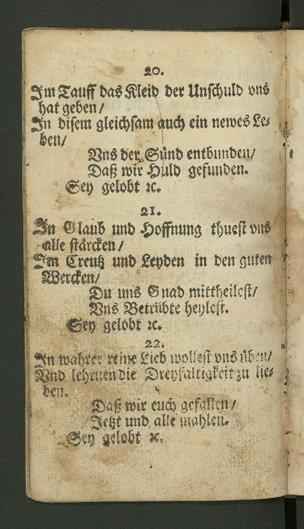 20.
Im Tauff das Kleid der Unschuld vns
hat geben/
In disem gleichsam auch ein newes Le-
ben/
Vns der Sünd entbunden/
Daß wir Huld gefunden.
Sey gelobt ꝛc.
21.
In Glaub und Hoffnung thuest vns
alle stärcken/
Im Creutz und Leyden in den guten
Wercken/
Du uns Gnad mittheilest/
Vns Betrübte heylest.
Sey gelobt ꝛc.
22.
In wahrer reine Lieb wollest vns üben/
Vnd lehrnen die Dreyfaltigkeit zu lie-
ben.
Daß wir euch gefallen/
Jetzt und alle mahlen.
Sey gelobt ꝛc.